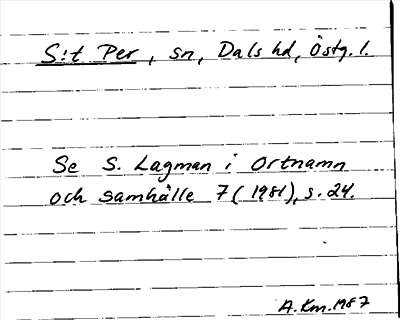 S:t Per, sn, Dals hd, Östg. l.
Se S. Lagman i Ortnamn
och samhälle 7 (1981), s. 24.
A. Km. 1987